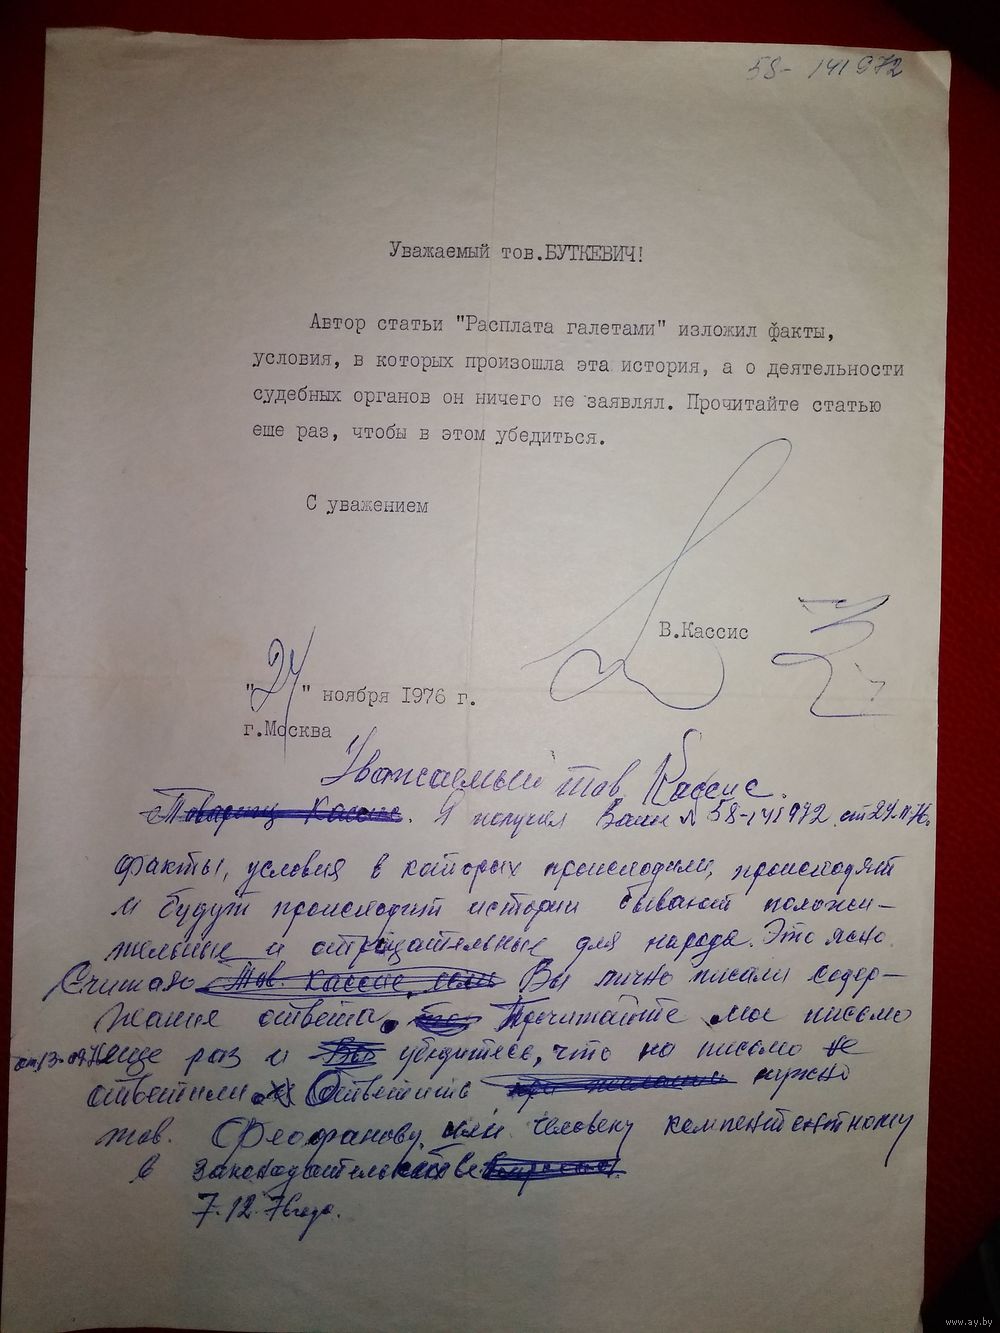 58-141972
Уважаемый тов.БУТКЕВИЧ!
Автор статьи "Расплата галетами" изложил факты,
условия, в которых произошла эта история, а о деятельности
судебных органов он ничего не заявлял. Прочитайте статью
еше раз, чтобы в этом убедиться.
С уважением
В.Кассис
"24" ноября 1976 г.
г.Москва
Уважаемый тов. Кассис.
Товарищ Кассис. Я получил Ваши № 58-141972 от 24.11.76.
Факты, условия в которых происходили, происходят
и будут происходит истории бывают положи-
тельные и отрицательные для народа. Это ясно.
Считаю Тов. Кассис, если Вы лично писали содер-
жание ответа. Прочитайте мое письмо
еще раз и Вы убедитесь, что на письмо не
ответили. Ответить нужно
тов. Феофанову или человеку компентентному
в законодательстве
7.12.76 года.
www.ay.by